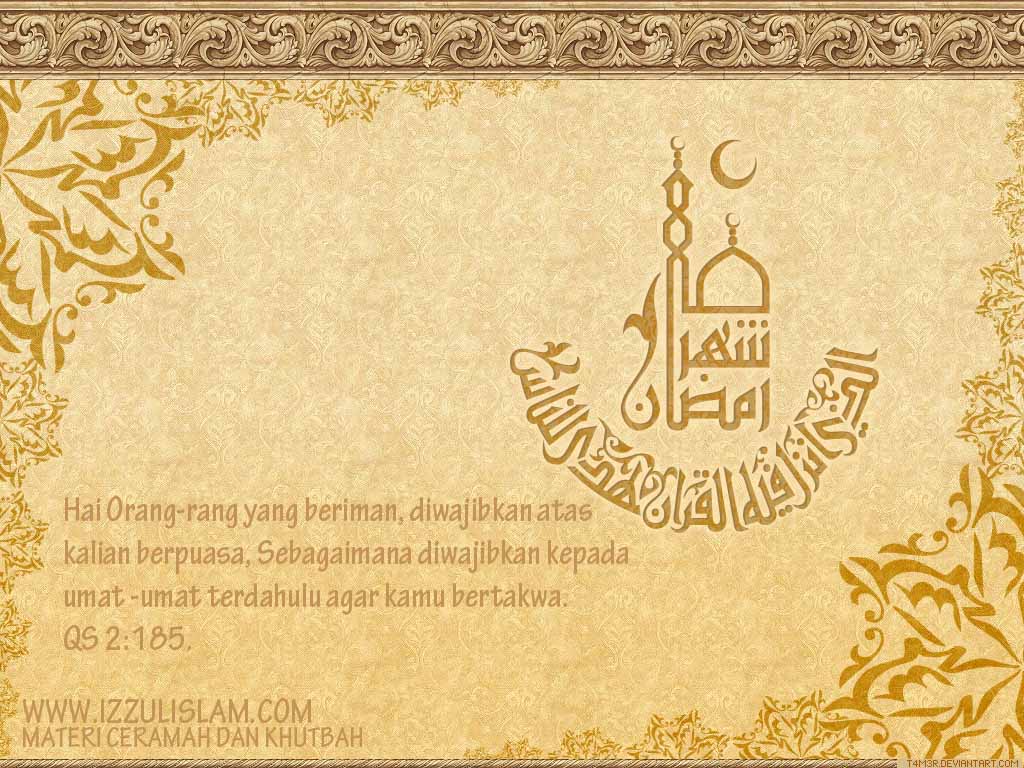 شهر
رمضان
الذي أنزل فيه القرآن هدى للناس
Hai Orang-rang yang beriman, diwajibkan atas
kalian berpuasa, Sebagaimana diwajibkan kepada
umat -umat terdahulu agar kamu bertakwa.
QS 2:185.
WWW.IZZULISLAM.COM
MATERI CERAMAH DAN KHUTBAH
T4M3R.DEVIANTART.COM